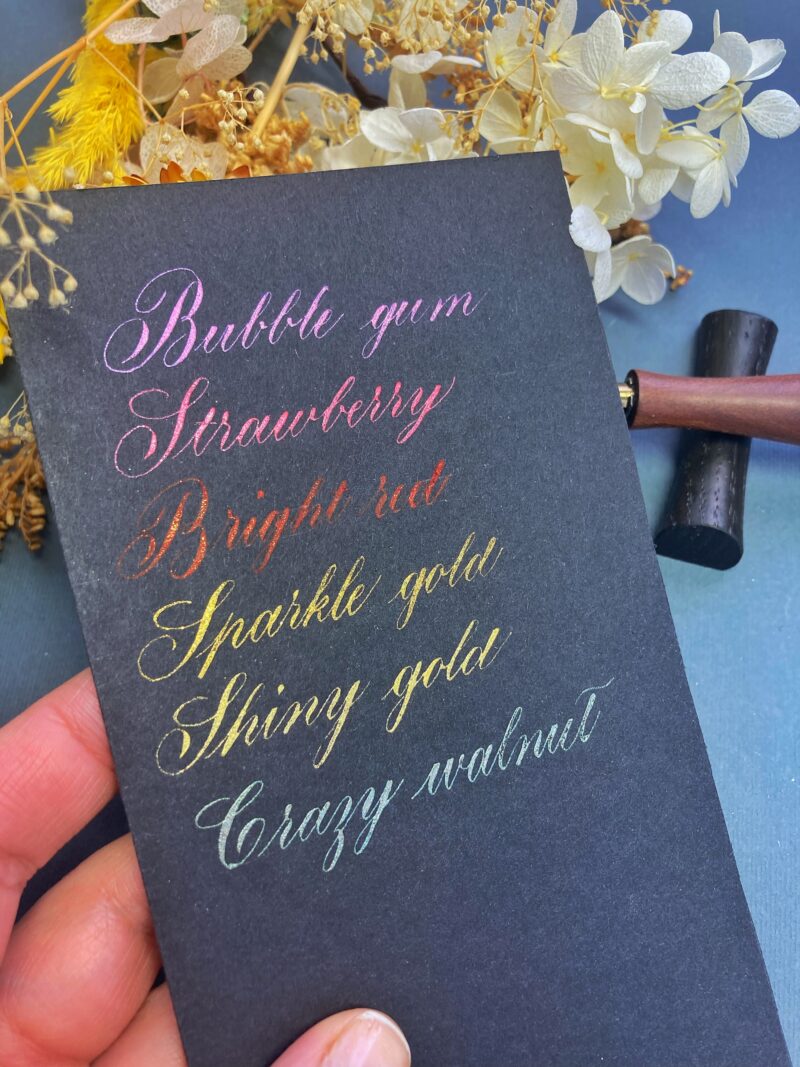 Bubble gum
Strawberry
Bright red
Sparkle gold
Shiny gold
Crazy walnut